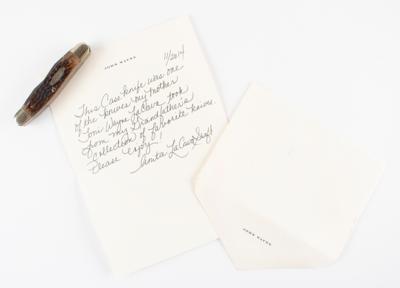 JOHN WAYNE
11/2014
This Case knife was one
of the knives my mother
Toni Wayne LaCava took
from my Grandfather's
Collection of favorite knives.
Please enjoy!
Anita LaCava Swift
JOHN WAYNE